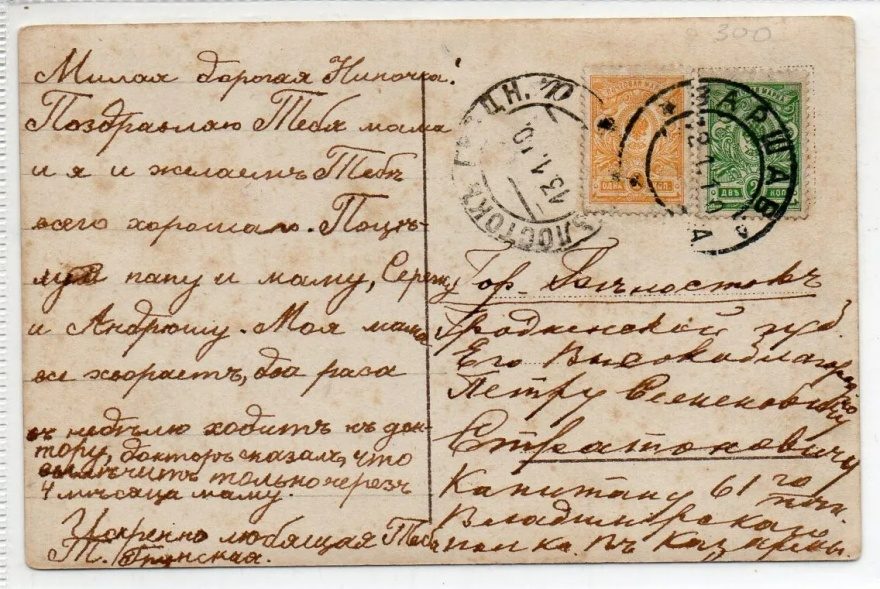 300
Милая дорогая Ниночка!
Поздравляю Тебя мама
и я и желаемъ Тебѣ
всего хорошаго. Поцѣ-
луй папу и маму, Сережу
и Андрюшу. Моя мама
все хвораетъ, два раза
въ недѣлю ходитъ къ док-
тору, докторъ сказалъ, что
вылѣчитъ только черезъ
4 мѣсяца маму.
Искренно любящая Тебя
Т.
БѢЛОСТОКЪ ГРОДН.
13.1.10
ПОЧТОВАЯ МАРКА
ОДНА КОП.
ВАРШАВА
12.1.10
ПОЧТОВАЯ МАРКА
ДВѢ 2 КОП.
Гор. Бѣлостокъ
Гродненской губ
Его Высокоблагородію
Петру Семеновичу
Стратоновичу
Капитану 61го пѣх.
Владимірскаго
полка. Въ Казармы